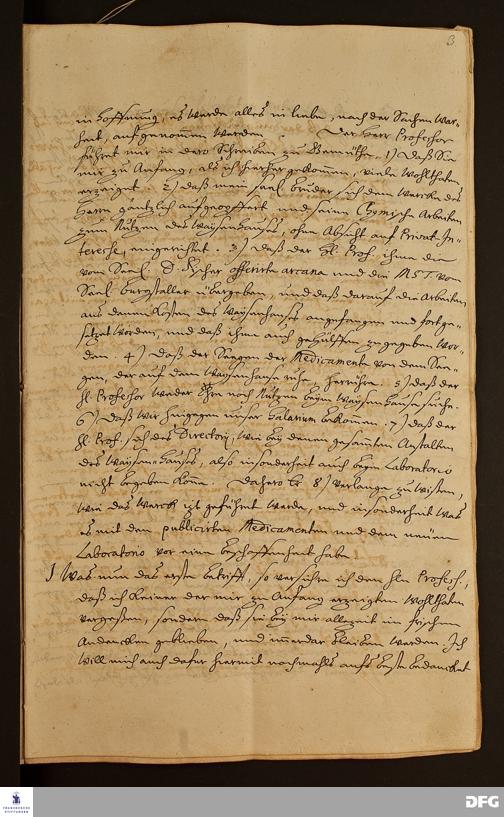 3.
in Hoffnung, es werde alles in liebe, nach der Sachen War-
heit, aufgenommen werden. Der Herr Professor
führet mir in dero Schreiben zu Gemüthe, 1) daß Sie
mir zu Anfang, als ich hierher gekommen, viele Wohlthaten
erzeiget. 2) daß mein seel. bruder sich dem Wercke des
Herrn gäntzlich aufgeopffert und seine Chymische Arbeiten
zum Nutzen des Waysenhauses, ohne Absicht auf Privat-In-
teresse, eingerichtet. 3) daß der H. Prof. ihme die
vom Seel. D. Fischer offerirte arcana und die MST vom
Seel. burgstaller übergeben, und daß darauf die Arbeiten
aus denen Kosten des Waysenhauses angefangen und fortge-
setzet worden, und daß ihme auch gehülffen zugegeben wor-
den. 4) daß der Seegen der Medicamente von dem See-
gen, der auf dem Waysenhause ruhe, herrühre. 5) daß der
H. Professor weder Ehre noch Nutzen beym Waysenhause suche.
6) daß wir hingegen unser Salarium bekommen. 7) daß der
H. Prof. sich des Directorii, wie bey denen gesamten Anstalten
des Waysenhauses, also insonderheit auch beym Laboratorio
nicht begeben könne. Dahero Er 8) verlange zu wissen,
wie das Werck itzt geführet werde, und insonderheit was
es mit den publicirten Medicamenten und dem neuen
Laboratorio vor eine beschaffenheit habe.
1 Was nun das erste betrifft, so versichere ich den Hen. Profess.,
daß ich keiner der mir zu Anfang erzeigten Wohlthaten
vergeßen, sondern daß sie bey mir allezeit in frischem
Andencken geblieben, und immerdar bleiben werden. Ich
will mich auch dafür hiermit nochmahls aufs beste bedancket
FRANCKESCHE
STIFTUNGEN
DFG